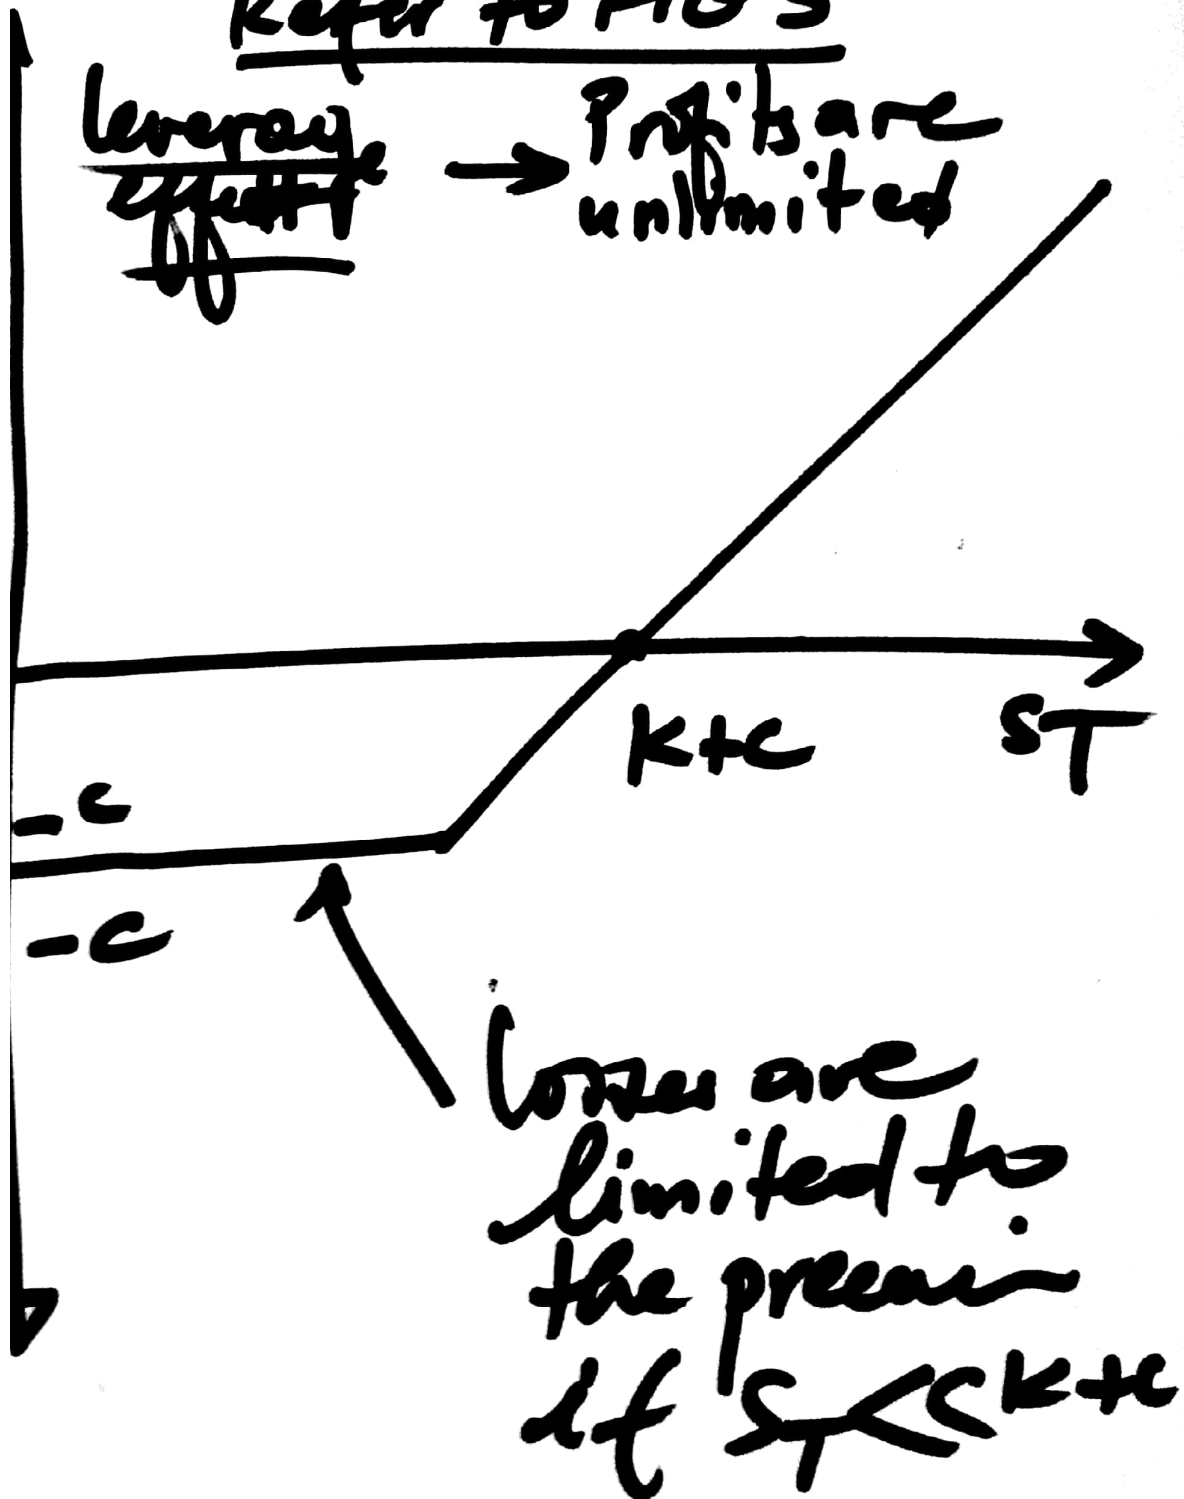 Refer to FIG 3
leverage
effect
→ Profits are
unlimited
K+C
ST
-C
-C
Losses are
limited to
the premium
if ST << K+C